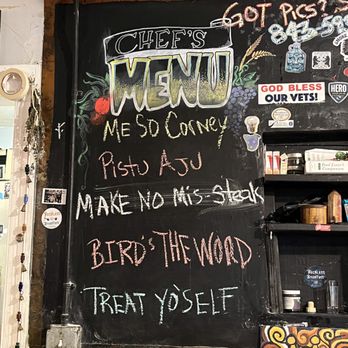 GOT PICS?
843-599
CHEF'S
MENU
ME SO Corney
Pistu Aju
MAKE NO Mis-Steak
BIRD'S THE WORD
TREAT YO'SELF
GOD BLESS
OUR VETS!
HERO